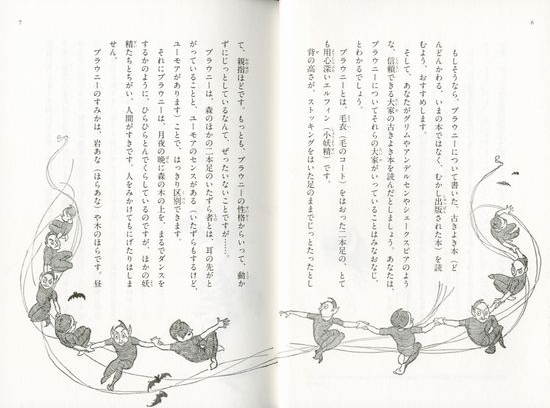 6
もしそうなら、ブラウニーについて書いた、古きよき本（ど
んどんかわる、いまの本ではなく、むかし出版された本）を読
むよう、おすすめします。
そして、あなたがグリムやアンデルセンやシェークスピアのよう
な、信頼できる大家の古きよき本を読んだとしましょう。あなたは、
ブラウニーについてそれらの大家がいっていることはみなおなじ、
とわかるでしょう。
ブラウニーとは、毛衣（毛のコート）をはおった二本足の、とて
も用心深いエルフィン（小妖精）です。
背の高さが、ストッキングをはいた足のままでじっとたったとし
7
て、親指ほどです。もっとも、ブラウニーの性格からいって、動か
ずにじっとしているなんて、ぜったいないことですが……。
ブラウニーは、森のほかの二本足のいたずら者とは、耳の先がと
がっていることと、ユーモアのセンスがある（いたずらもするけど、
ユーモアがあります）ことで、はっきり区別できます。
それにブラウニーは、月夜の晩に森の木の上を、まるでダンスを
するかのように、ひらひらとんでくらしているのですが、ほかの妖
精たちとちがい、人間がすきです。人をみかけてもにげたりはしま
せん。
ブラウニーのすみかは、岩あな（ほらあな）や木のほらです。昼